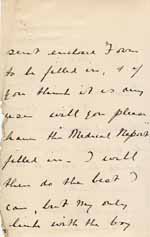 sent enclosed Form
to be filled in, & if
you think it is any
use will you please
have the Medical Report
filled in. I will
then do the best I
can, but my only
with the boy